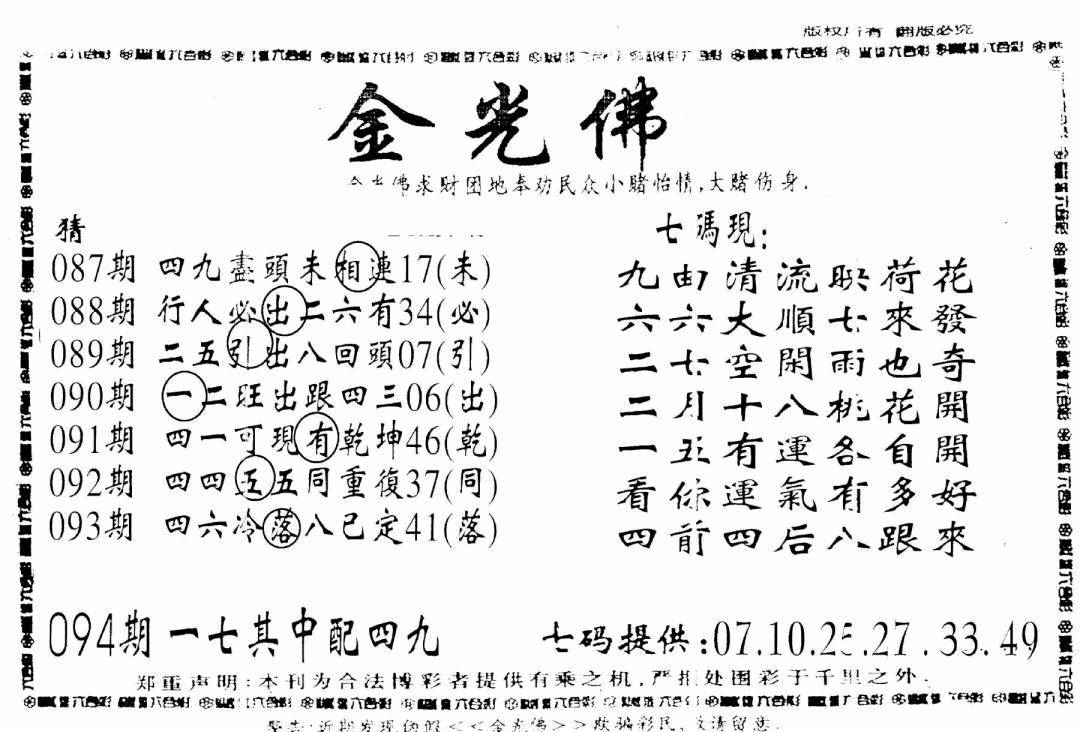 版权所有 翻版必究
金光佛
金光佛求财团地奉劝民众小赌怡情,大赌伤身.
猜
087期 四九盡頭未相連17(未)
088期 行人必出二六有34(必)
089期 二五引出八回頭07(引)
090期 一二旺出跟四三06(出)
091期 四一可現有乾坤46(乾)
092期 四四五五同重復37(同)
093期 四六冷落八已定41(落)
七碼現:
九由清流映荷花
六六大順七來發
二七空閑雨也奇
二月十八桃花開
一五有運各自開
看你運氣有多好
四前四后八跟來
094期 一七其中配四九
七码提供:07.10.25.27.33.49
郑重声明:本刊为合法博彩者提供有乘之机,严拒处围彩于千里之外.
警告:近期发现伪假<<金光佛>>欺骗彩民,敬请留意.